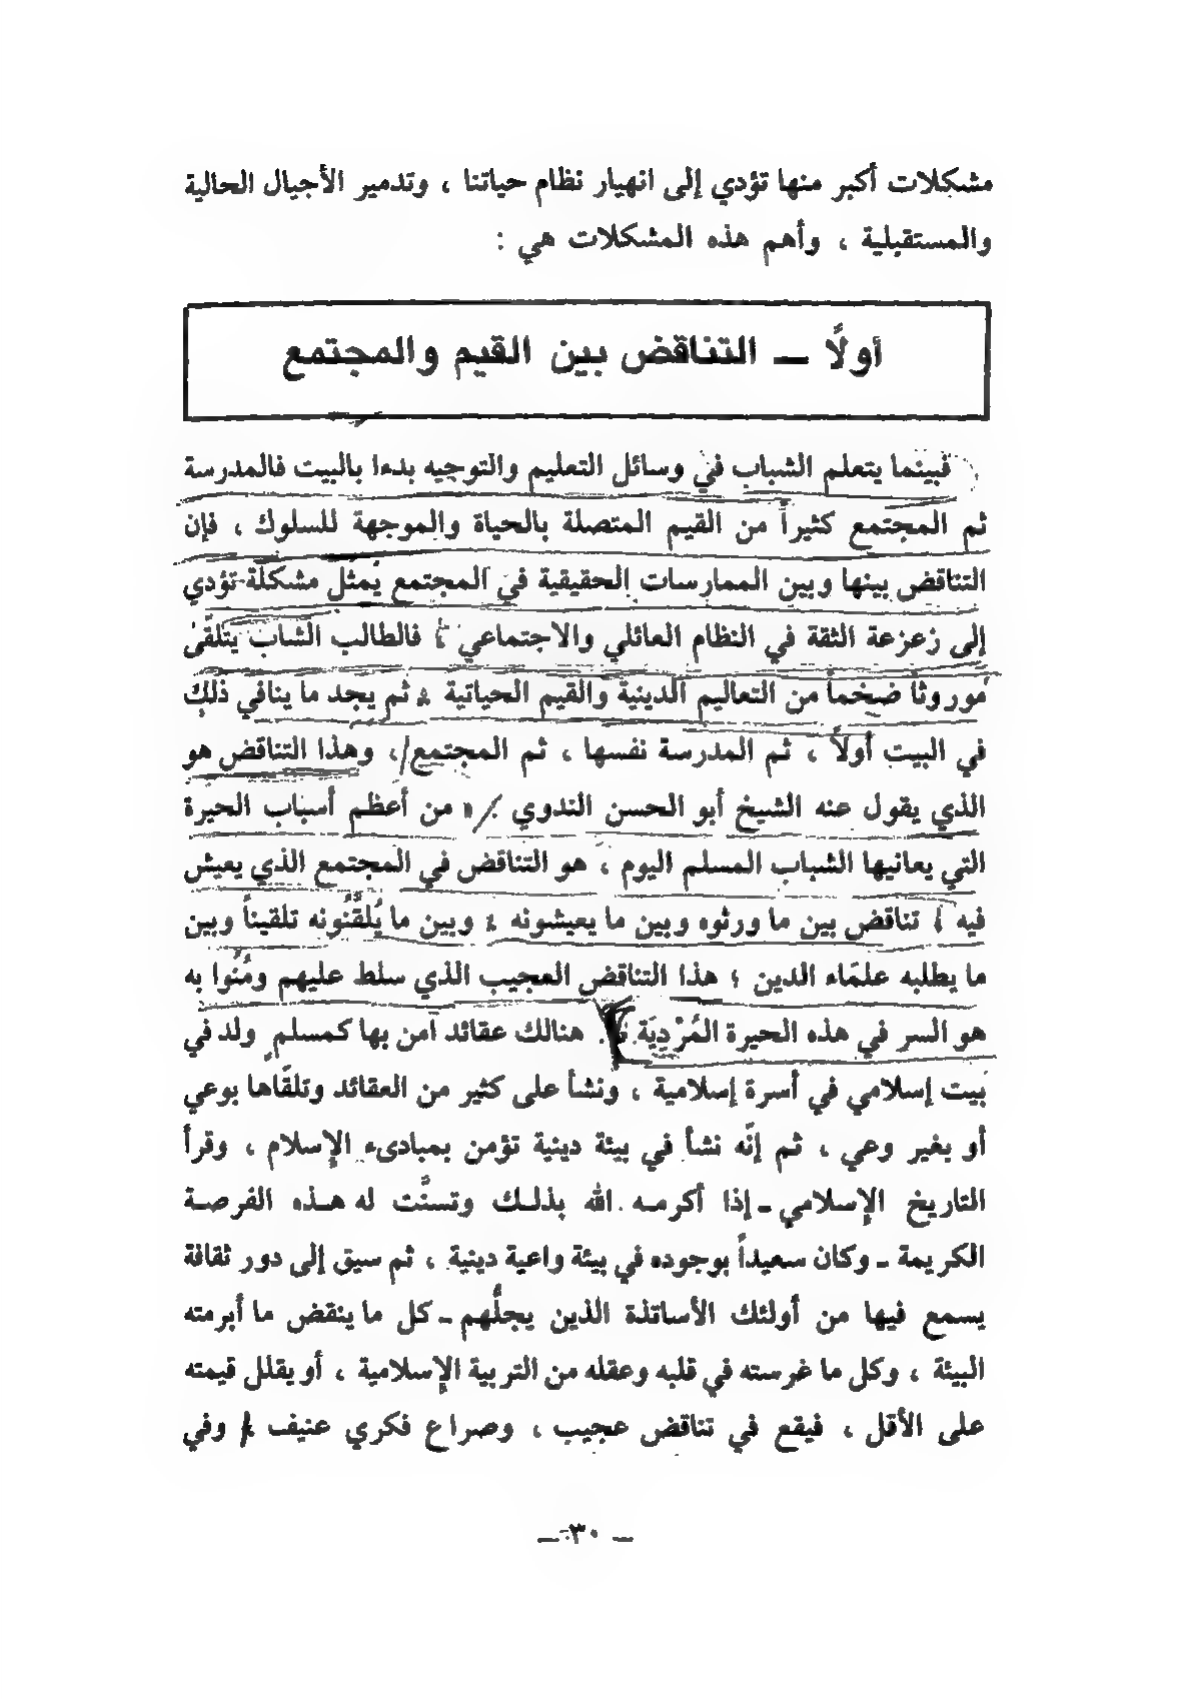 مشكلات أكبر منها تؤدي إلى انهيار نظام حياتنا ، وتدمير الأجيال الحالية
والمستقبلية ، وأهم هذه المشكلات هي :
أولاً — التناقض بين القيم والمجتمع
فبينما يتعلم الشباب في وسائل التعليم والتوجيه بدءا بالبيت فالمدرسة
ثم المجتمع كثيراً من القيم المتصلة بالحياة والموجهة للسلوك ، فإن
التناقض بينها وبين الممارسات الحقيقية في المجتمع يُمثل مشكلة تؤدي
إلى زعزعة الثقة في النظام العائلي والاجتماعي ؛ فالطالب الشاب يتلقَّى
موروثا ضخماً من التعاليم الدينية والقيم الحياتية ؛ ثم يجد ما ينافي ذلك
في البيت أولاً ، ثم المدرسة نفسها ، ثم المجتمع ، وهذا التناقض هو
الذي يقول عنه الشيخ أبو الحسن الندوي : « من أعظم أسباب الحيرة
التي يعانيها الشباب المسلم اليوم ، هو التناقض في المجتمع الذي يعيش
فيه ؛ تناقض بين ما ورثوه وبين ما يعيشونه ؛ وبين ما يُلقَّنُونه تلقيناً وبين
ما يطلبه علماء الدين ؛ هذا التناقض العجيب الذي سلط عليهم ومُنُوا به
هو السر في هذه الحيرة المُرْدِيَة . هنالك عقائد آمن بها كمسلم ولد في
بيت إسلامي في أسرة إسلامية ، ونشأ على كثير من العقائد وتلقَّاها بوعي
أو بغير وعي ، ثم إنَّه نشأ في بيئة دينية تؤمن بمبادىء الإسلام ، وقرأ
التاريخ الإسلامي ـ إذا أكرمه الله بذلك وتسنَّت له هذه الفرصة
الكريمة ـ وكان سعيداً بوجوده في بيئة واعية دينية ، ثم سيق إلى دور ثقافة
يسمع فيها من أولئك الأساتذة الذين يجلُّهم ـ كل ما ينقض ما أبرمته
البيئة ، وكل ما غرسته في قلبه وعقله من التربية الإسلامية ، أو يقلل قيمته
على الأقل ، فيقع في تناقض عجيب ، وصراع فكري عنيف ؛ وفي
— ٣٠ —